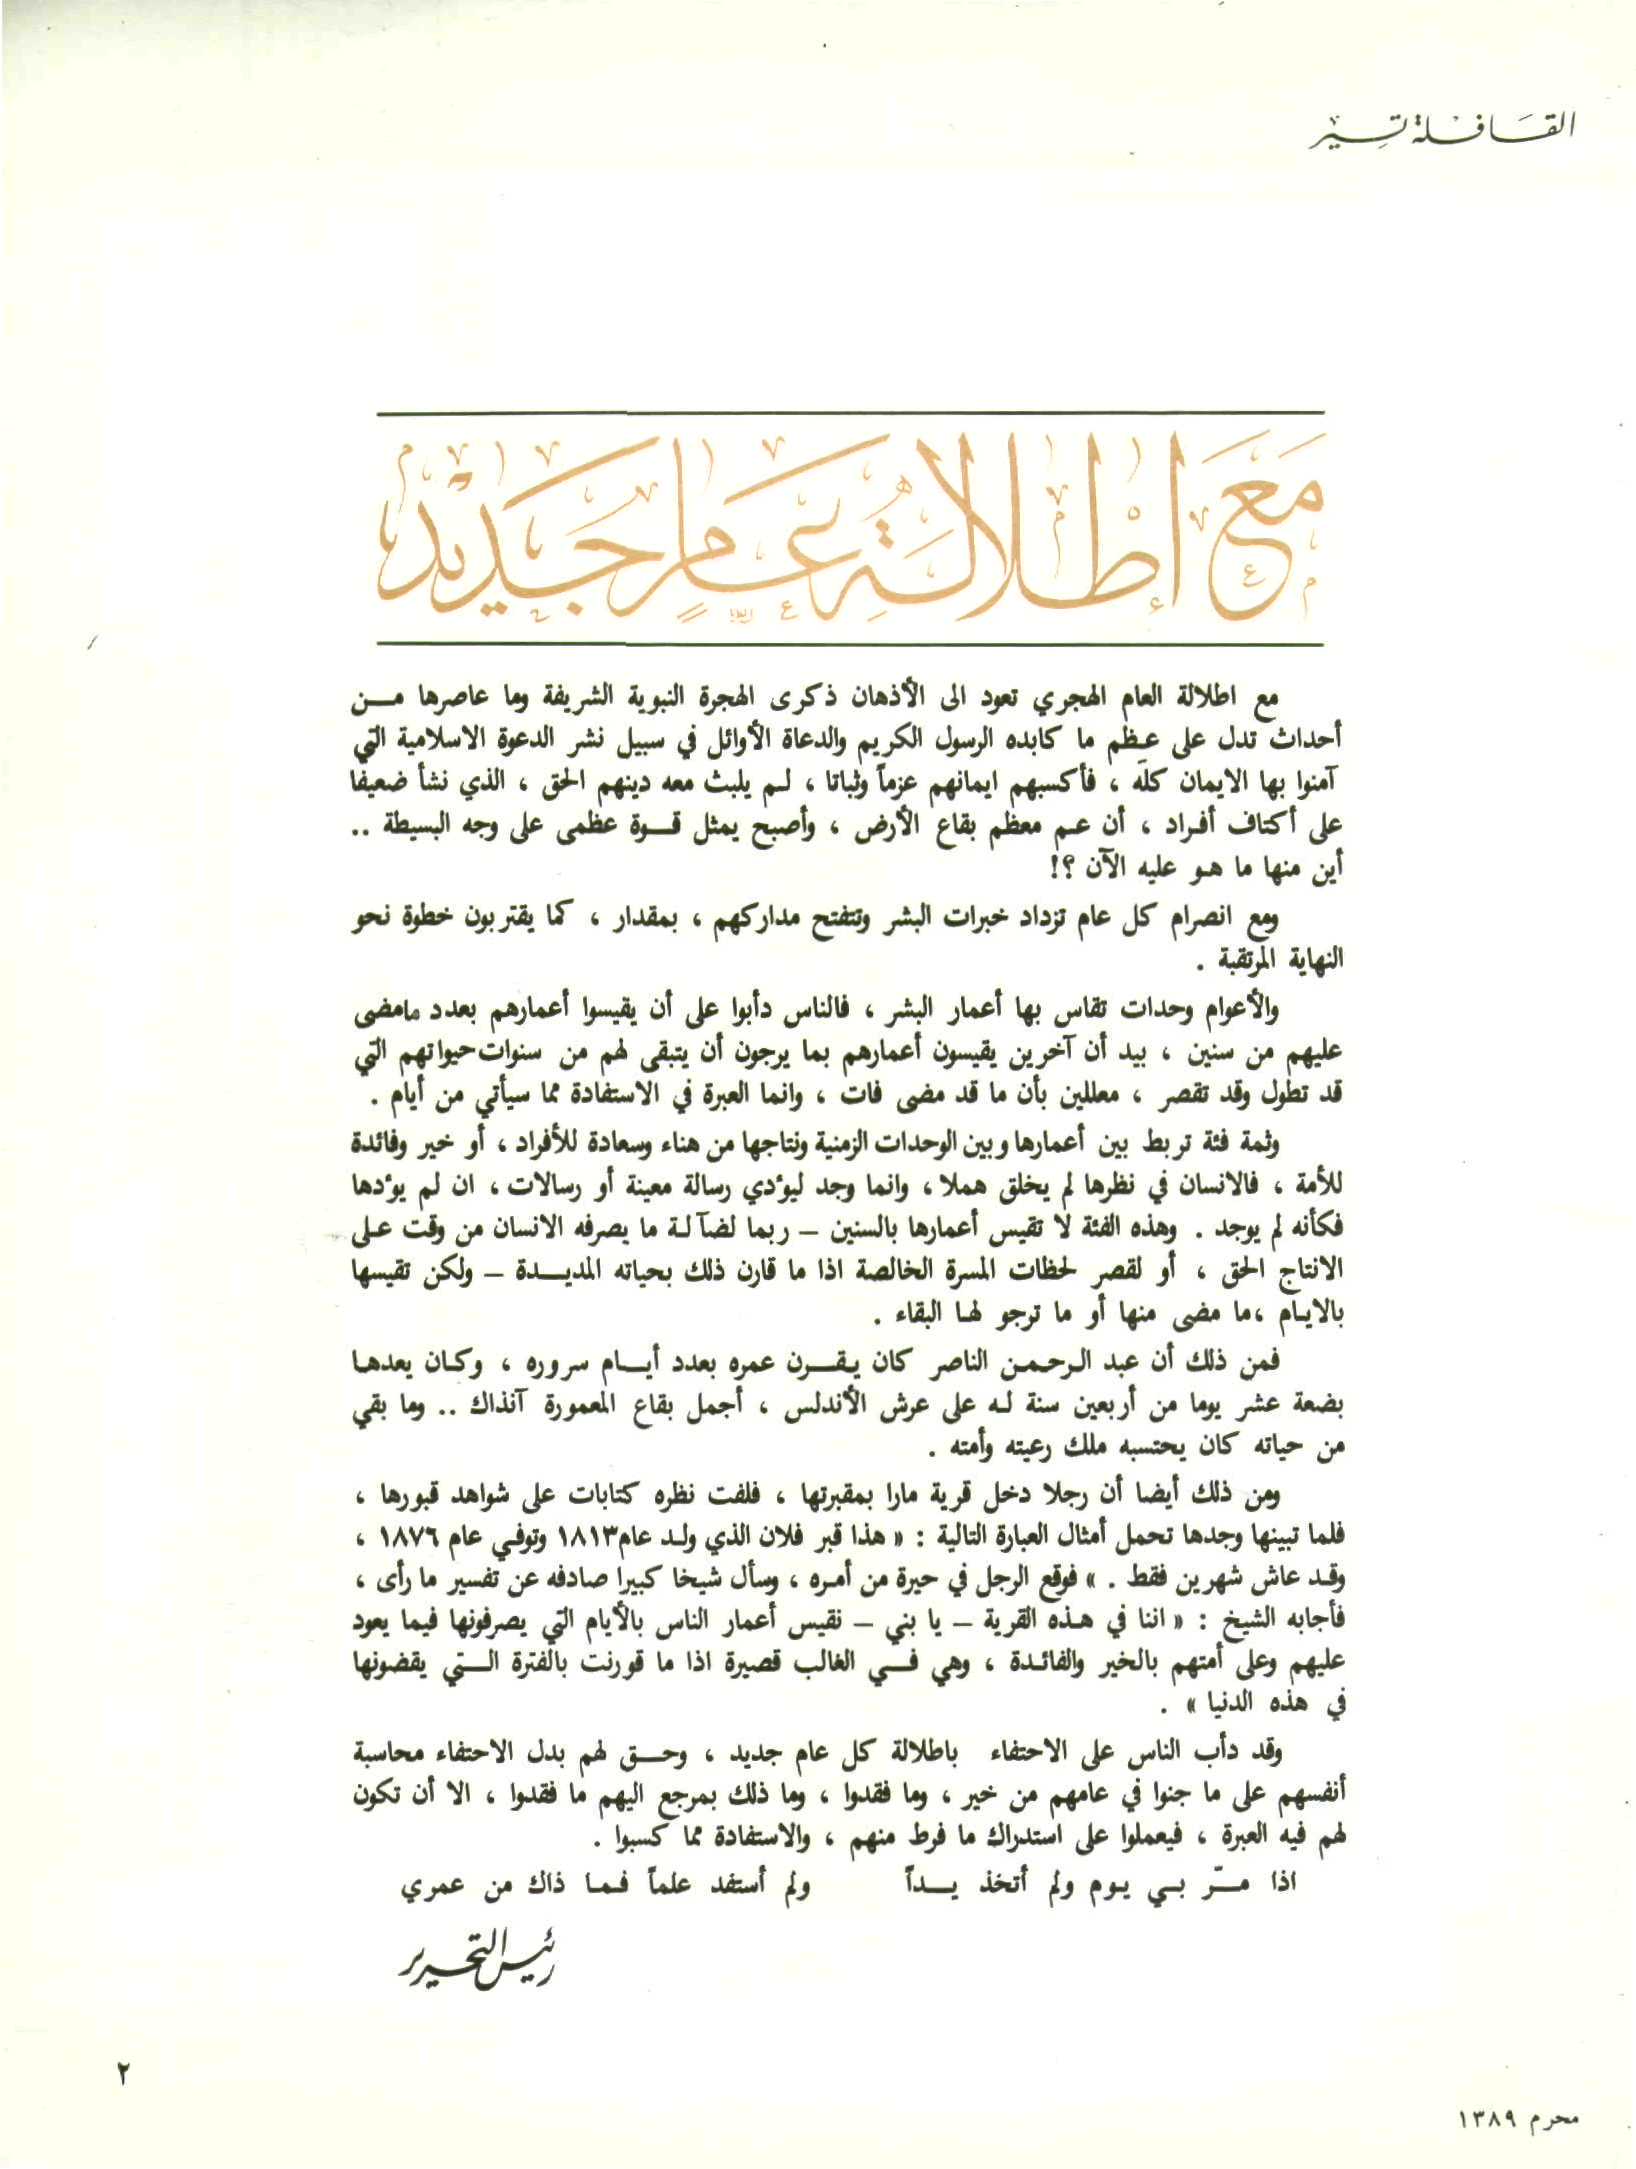 القافلة تسير
مع إطلالة عام جديد
مع اطلالة العام الهجري تعود الى الأذهان ذكرى الهجرة النبوية الشريفة وما عاصرها مـن
أحداث تدل على عظم ما كابده الرسول الكريم والدعاة الأوائل في سبيل نشر الدعوة الاسلامية التي
آمنوا بها الايمان كله ، فأكسبهم ايمانهم عزماً وثباتا ، لـم يلبث معه دينهم الحق ، الذي نشأ ضعيفا
على أكتاف أفـراد ، أن عـم معظم بقاع الأرض ، وأصبح يمثل قـوة عظمى على وجه البسيطة ..
أين منها ما هـو عليه الآن ؟!
ومع انصرام كل عام تزداد خبرات البشر وتتفتح مداركهم ، بمقدار ، كما يقتربون خطوة نحو
النهاية المرتقبة .
والأعوام وحدات تقاس بها أعمار البشر ، فالناس دأبوا على أن يقيسوا أعمارهم بعدد مامضى
عليهم من سنين ، بيد أن آخرين يقيسون أعمارهم بما يرجون أن يتبقى لهم من سنوات حيواتهم التي
قد تطول وقد تقصر ، معللين بأن ما قد مضى فات ، وانما العبرة في الاستفادة مما سيأتي من أيام .
وثمة فئة تربط بين أعمارها وبين الوحدات الزمنية ونتاجها من هناء وسعادة للأفراد ، أو خير وفائدة
للأمة ، فالانسان في نظرها لم يخلق هملا ، وانما وجد ليؤدي رسالة معينة أو رسالات ، ان لم يؤدها
فكأنه لم يوجد . وهذه الفئة لا تقيس أعمارها بالسنين – ربما لضآلـة ما يصرفه الانسان من وقت عـلى
الانتاج الحق ، أو لقصر لحظات المسرة الخالصة اذا ما قارن ذلك بحياته المديـدة – ولكن تقيسها
بالايـام ،ما مضى منها أو ما ترجو لهـا البقاء .
فمن ذلك أن عبد الـرحمـن الناصر كان يقـرن عمره بعدد أيـام سروره ، وكـان يعدهـا
بضعة عشر يوما من أربعين سنة لـه على عرش الأندلس ، أجمل بقاع المعمورة آنذاك .. وما بقي
من حياته كان يحتسبه ملك رعيته وأمته .
ومن ذلك أيضا أن رجلا دخل قرية مارا بمقبرتها ، فلفت نظره كتابات على شواهد قبورها ،
فلما تبينها وجدها تحمل أمثال العبارة التالية : « هذا قبر فلان الذي ولـد عام ١٨١٣ وتوفي عام ١٨٧٦ ،
وقـد عاش شهرين فقط . » فوقع الرجل في حيرة من أمـره ، وسأل شيخا كبيرا صادفه عن تفسير ما رأى ،
فأجابه الشيخ : « اننا في هـذه القرية – يا بني – نقيس أعمار الناس بالأيام التي يصرفونها فيما يعود
عليهم وعلى أمتهم بالخير والفائـدة ، وهي فـي الغالب قصيرة اذا ما قورنت بالفترة الـتي يقضونها
في هذه الدنيا » .
وقد دأب الناس على الاحتفاء باطلالة كل عام جديد ، وحـق لهم بدل الاحتفاء محاسبة
أنفسهم على ما جنوا في عامهم من خير ، وما فقدوا ، وما ذلك بمرجع اليهم ما فقدوا ، الا أن تكون
لهم فيه العبرة ، فيعملوا على استدراك ما فرط منهم ، والاستفادة مما كسبوا .
اذا مـرّ بـي يـوم ولم أتخذ يـداً ولم أستفد علماً فـمـا ذاك من عمري
رئيس التحرير
٢
محرم ١٣٨٩